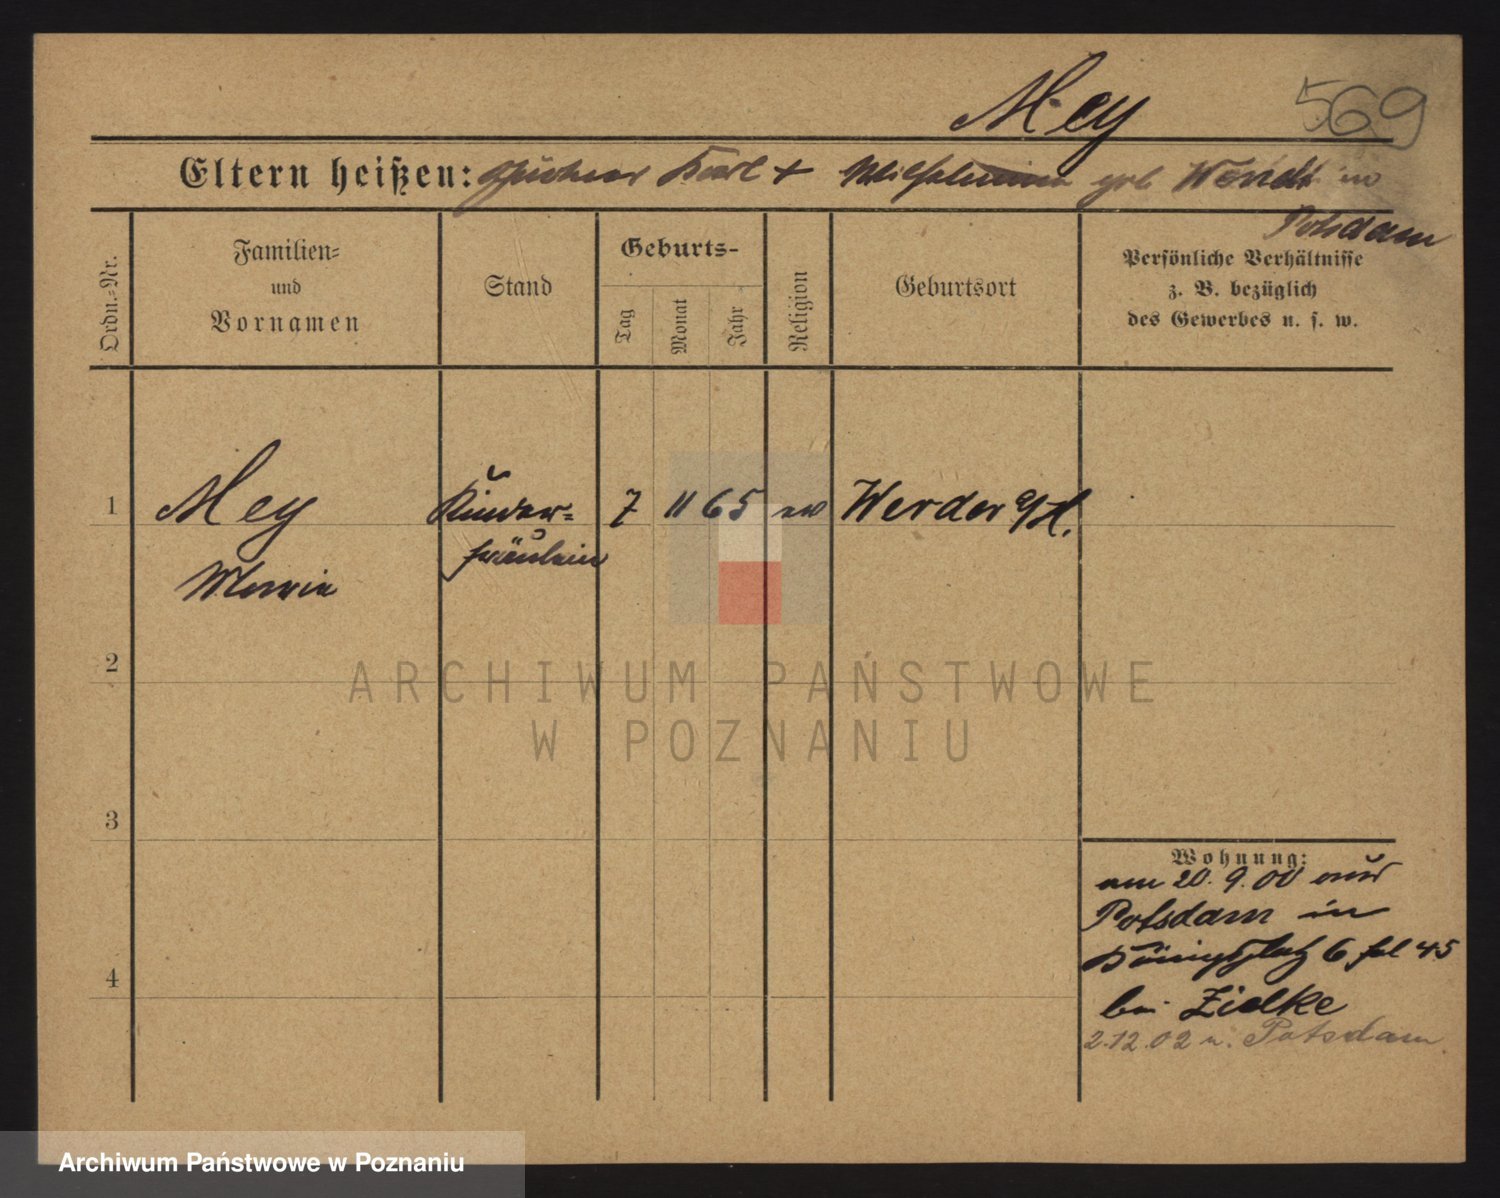 Mey 569
Eltern heißen: Karl + Wilhelmine geb Wendt in
Potsdam
Ordn.=Nr.
Familien=
und
Vornamen
Stand
Geburts-
Tag
Monat
Jahr
Religion
Geburtsort
Persönliche Verhältnisse
z. B. bezüglich
des Gewerbes u. s. w.
1 Mey Kinder= 7 11 65 ev Werder a/H.
fräulein
Marie
2
ARCHIWUM PAŃSTWOWE
W POZNANIU
3
Wohnung:
am 20.9.00 aus
Potsdam in
Königsplatz 6 45
4
bei Zielke
2.12.02 n. Potsdam.
Archiwum Państwowe w Poznaniu